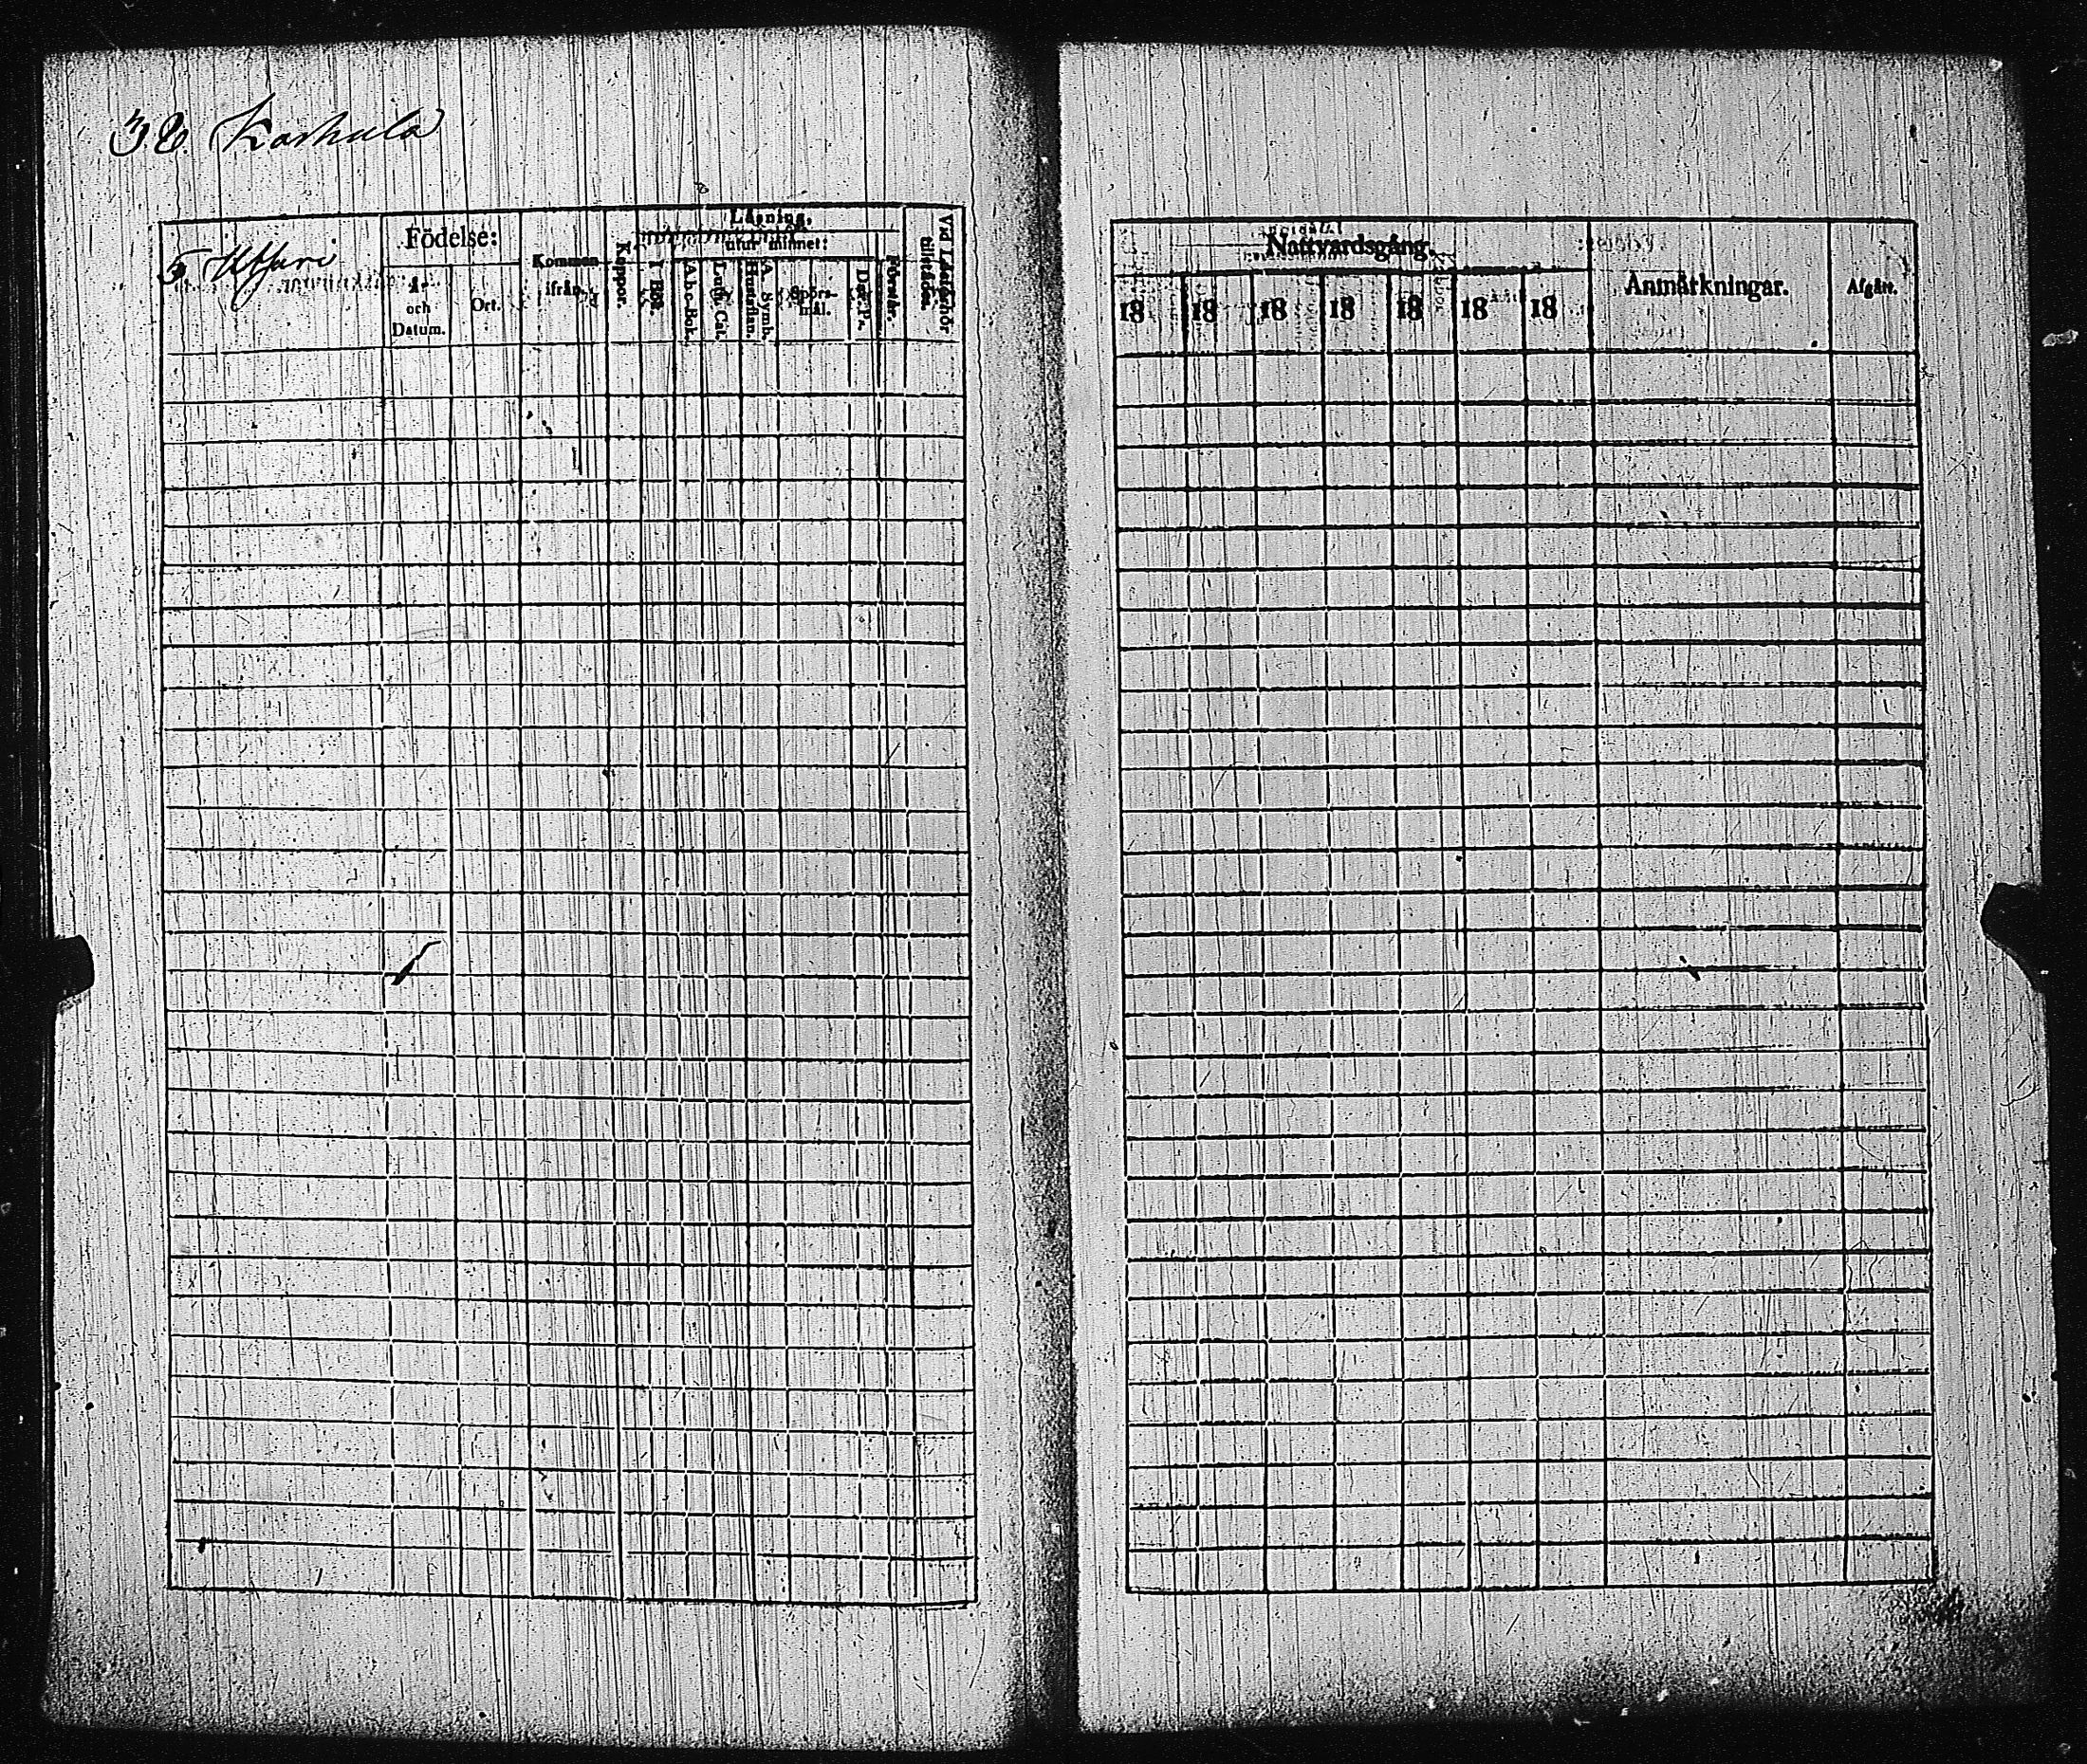 38. Karhula
5 Uttjari
Födelse:
År och Datum.
Ort.
Kommen ifrån.
Koppor.
Läsning,
utur minnet:
I Bok.
A.b.c-Bok.
Luth. Cat.
Hustaflan.
A. Symb.
Spörsmål.
Dav. Ps.
Förstår.
Vid Läsförhör tillstådes.
Nattvardsgång.
18 18 18 18 18 18 18
Anmärkningar.
Afgått.